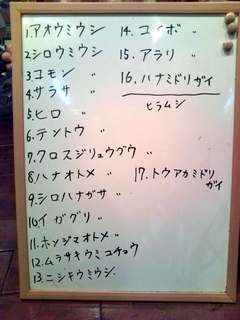 1.アオウミウシ
2.シロウミウシ
3.コモン 〃
4.サラサ 〃
5.ヒロ 〃
6.テントウ 〃
7.クロスジリュウグウ 〃
8.ハナオトメ 〃
9.シロハナガサ 〃
10.イガグリ 〃
11.ホンジマオトメ 〃
12.ムラサキウミコチョウ
13.ニシキウミウシ.
14.コイボ 〃
15.アラリ 〃
16.ハナミドリガイ
ヒラムシ
17.トウアカミドリ
ガイ